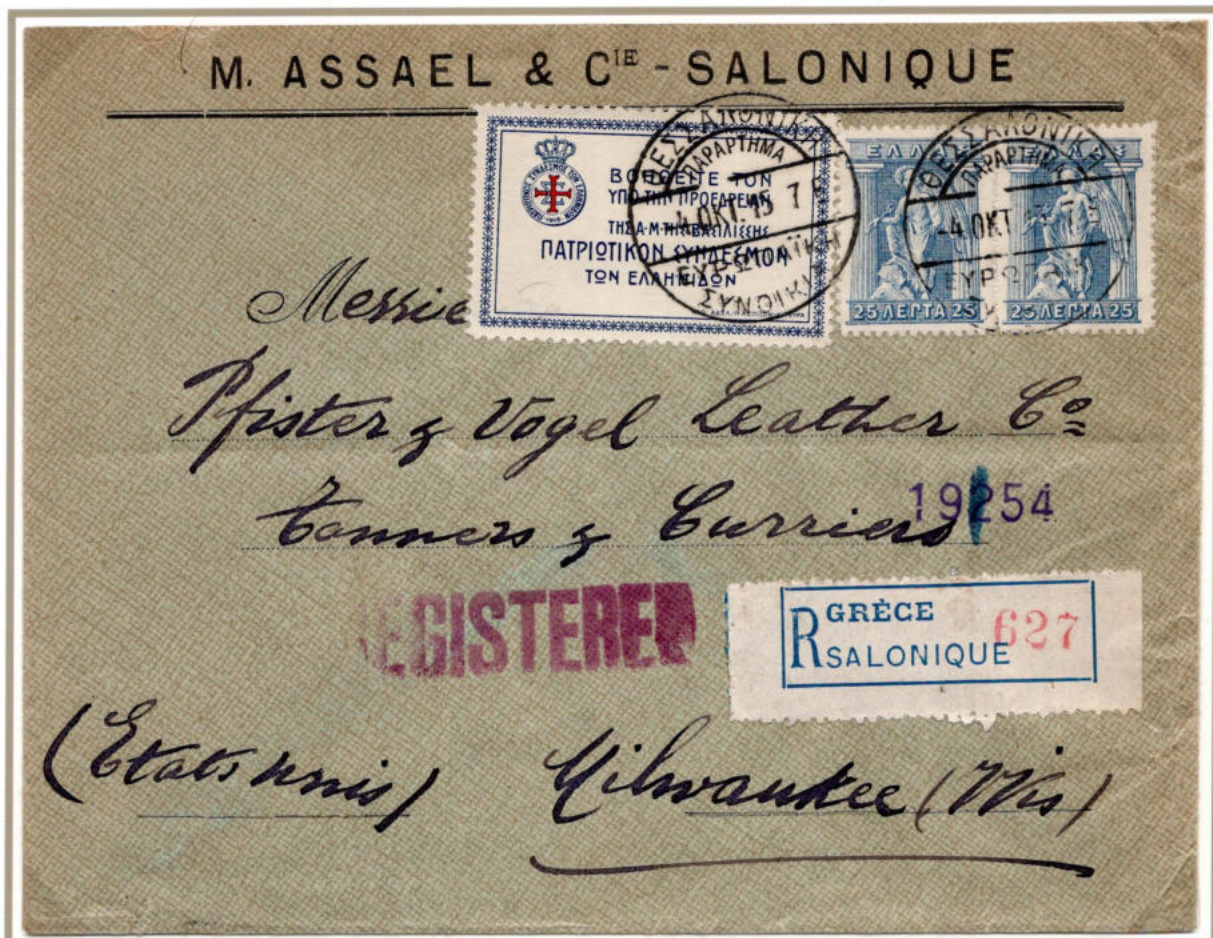 M. ASSAEL & CIE - SALONIQUE
ΒΟΗΘΕΙΤΕ ΤΟΝ
ΥΠΟ ΤΗΝ ΠΡΟΕΔΡΕΙΑΝ
ΤΗΣ Α·Μ·ΤΗΣ ΒΑΣΙΛΙΣΣΗΣ
ΠΑΤΡΙΩΤΙΚΟΝ ΣΥΝΔΕΣΜΟΝ
ΤΩΝ ΕΛΛΗΝΙΔΩΝ
ΘΕΣΣΑΛΟΝΙΚΗ
ΠΑΡΑΡΤΗΜΑ
-4 ΟΚΤ. 15 7
ΕΥΡΩΠΑΪΚΗ
ΣΥΝΟΙΚΙΑ
ΕΛΛΑΣ
25 ΛΕΠΤΑ 25
25 ΛΕΠΤΑ 25
ΘΕΣΣΑΛΟΝΙΚΗ
ΠΑΡΑΡΤΗΜΑ
-4 ΟΚΤ
Messie
Pfister & Vogel Leather Co
Tanners & Curriers
19254
REGISTERED
R GRÈCE
SALONIQUE 627
(Etats Unis) Milwaukee (Wis)